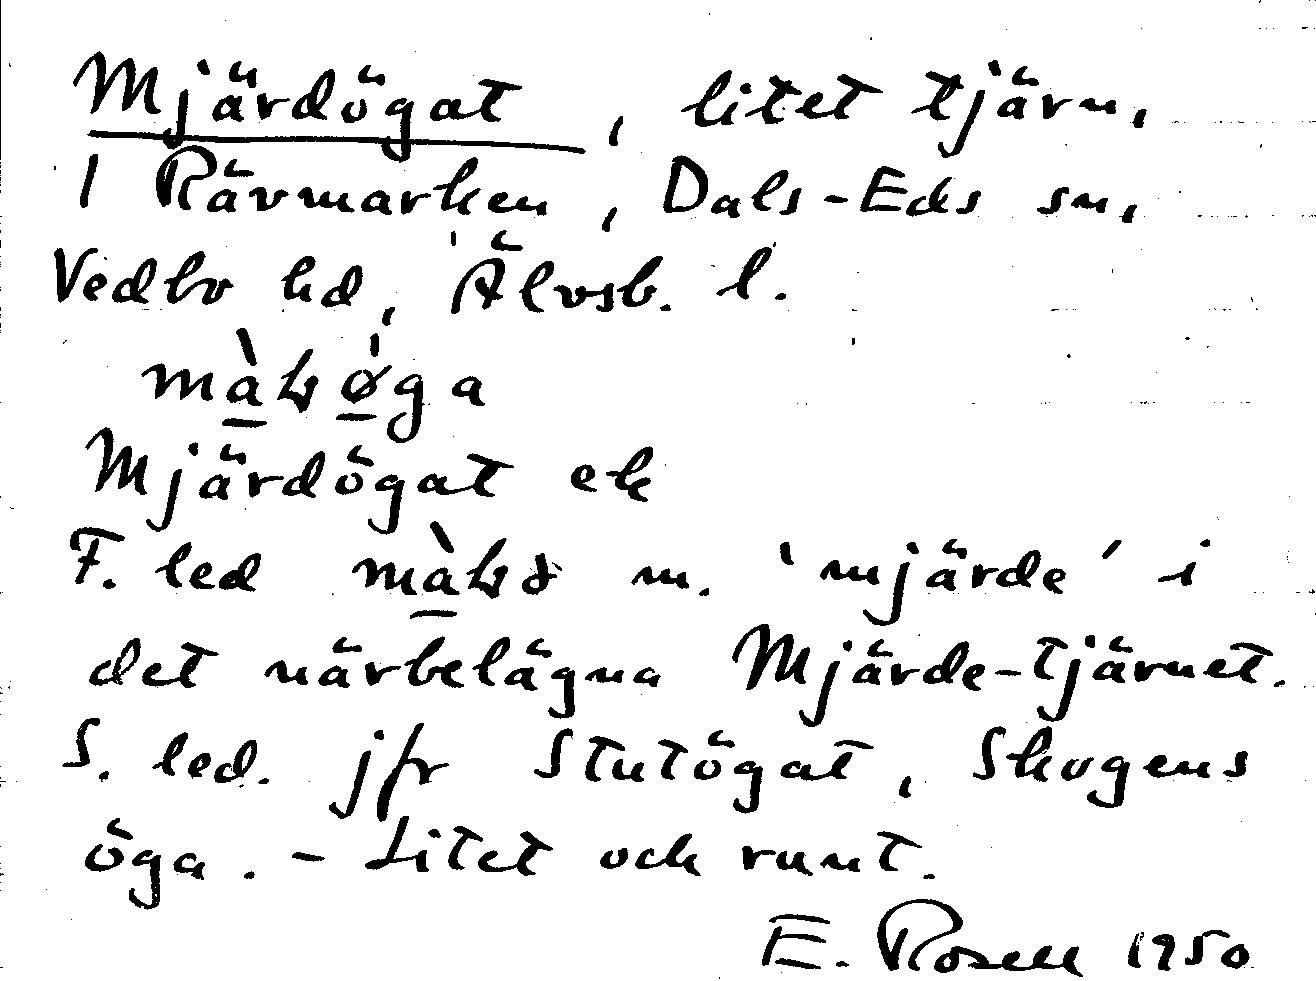 Mjärdögat, litet tjärn,
1 Rävmarken, Dals-Eds sn,
Vedbo hd, Älvsb. l.
Mjärdögat ek
F. led m. 'mjärde' i
det närbelägna Mjärde-tjärnet.
S. led. jfr Stutögat, Skogens
öga. - Litet och runt.
E. Rosell 1950